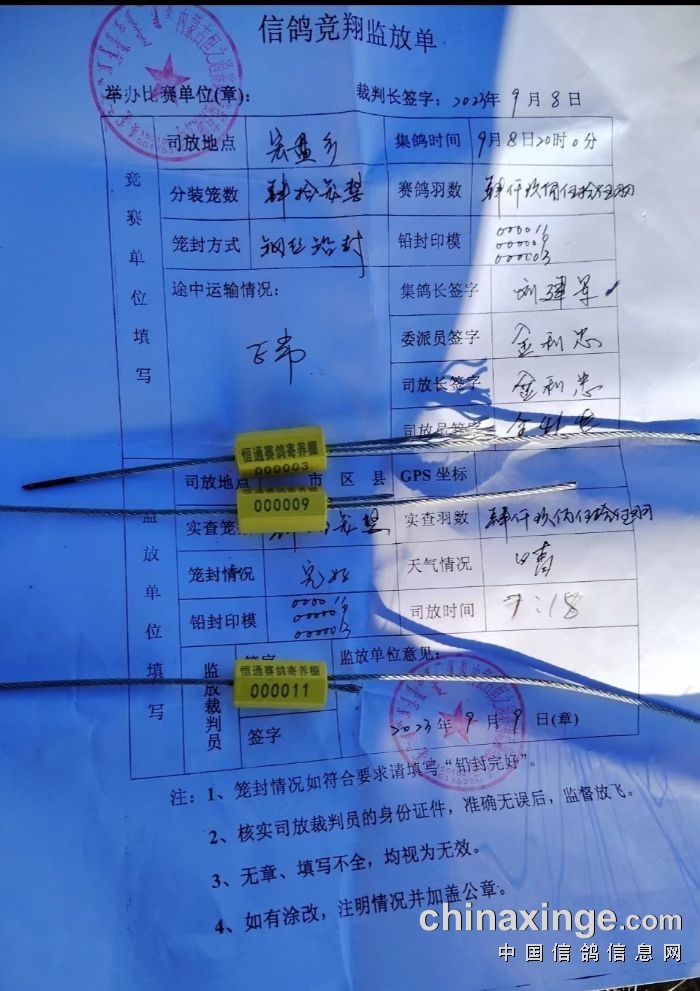 信鸽竞翔监放单
举办比赛单位(章): 裁判长签字: 2023年9月8日
竞赛单位填写
司放地点 宏盘乡 集鸽时间 9月8日20时0分
分装笼数 赛鸽羽数
笼封方式 钢丝铅封 铅封印模 000011
000009
000003
途中运输情况: 正常
集鸽长签字 刘建军
委派员签字 金利忠
司放长签字 金利忠
司放员签字
恒通赛鸽寄养棚
000003
监放单位填写
司放地点 市 区 县 GPS 坐标
000009
实查笼 实查羽数
笼封情况 完好 天气情况 晴
铅封印模 000011
000009
000003
司放时间 7:18
监放裁判员
签字
监放单位意见:
恒通赛鸽寄养棚
000011
签字
2023年9月9日(章)
注: 1、笼封情况如符合要求请填写“铅封完好”。
2、核实司放裁判员的身份证件,准确无误后,监督放飞。
3、无章、填写不全,均视为无效。
4、如有涂改,注明情况并加盖公章。
chinaxinge.com
中国信鸽信息网